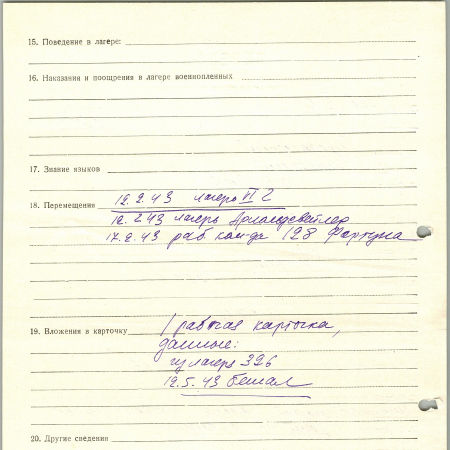 15. Поведение в лагере:
16. Наказания и поощрения в лагере военнопленных
17. Знание языков
18. Перемещения 12.2.43 лагерь II G
12.2.43 лагерь Арнольдсвейлер
17.2.43 раб. ком-да 128 Фортуна
19. Вложения в карточку 1 рабочая карточка,
данные:
из лагеря 326
12.5.43 бежал
20. Другие сведения